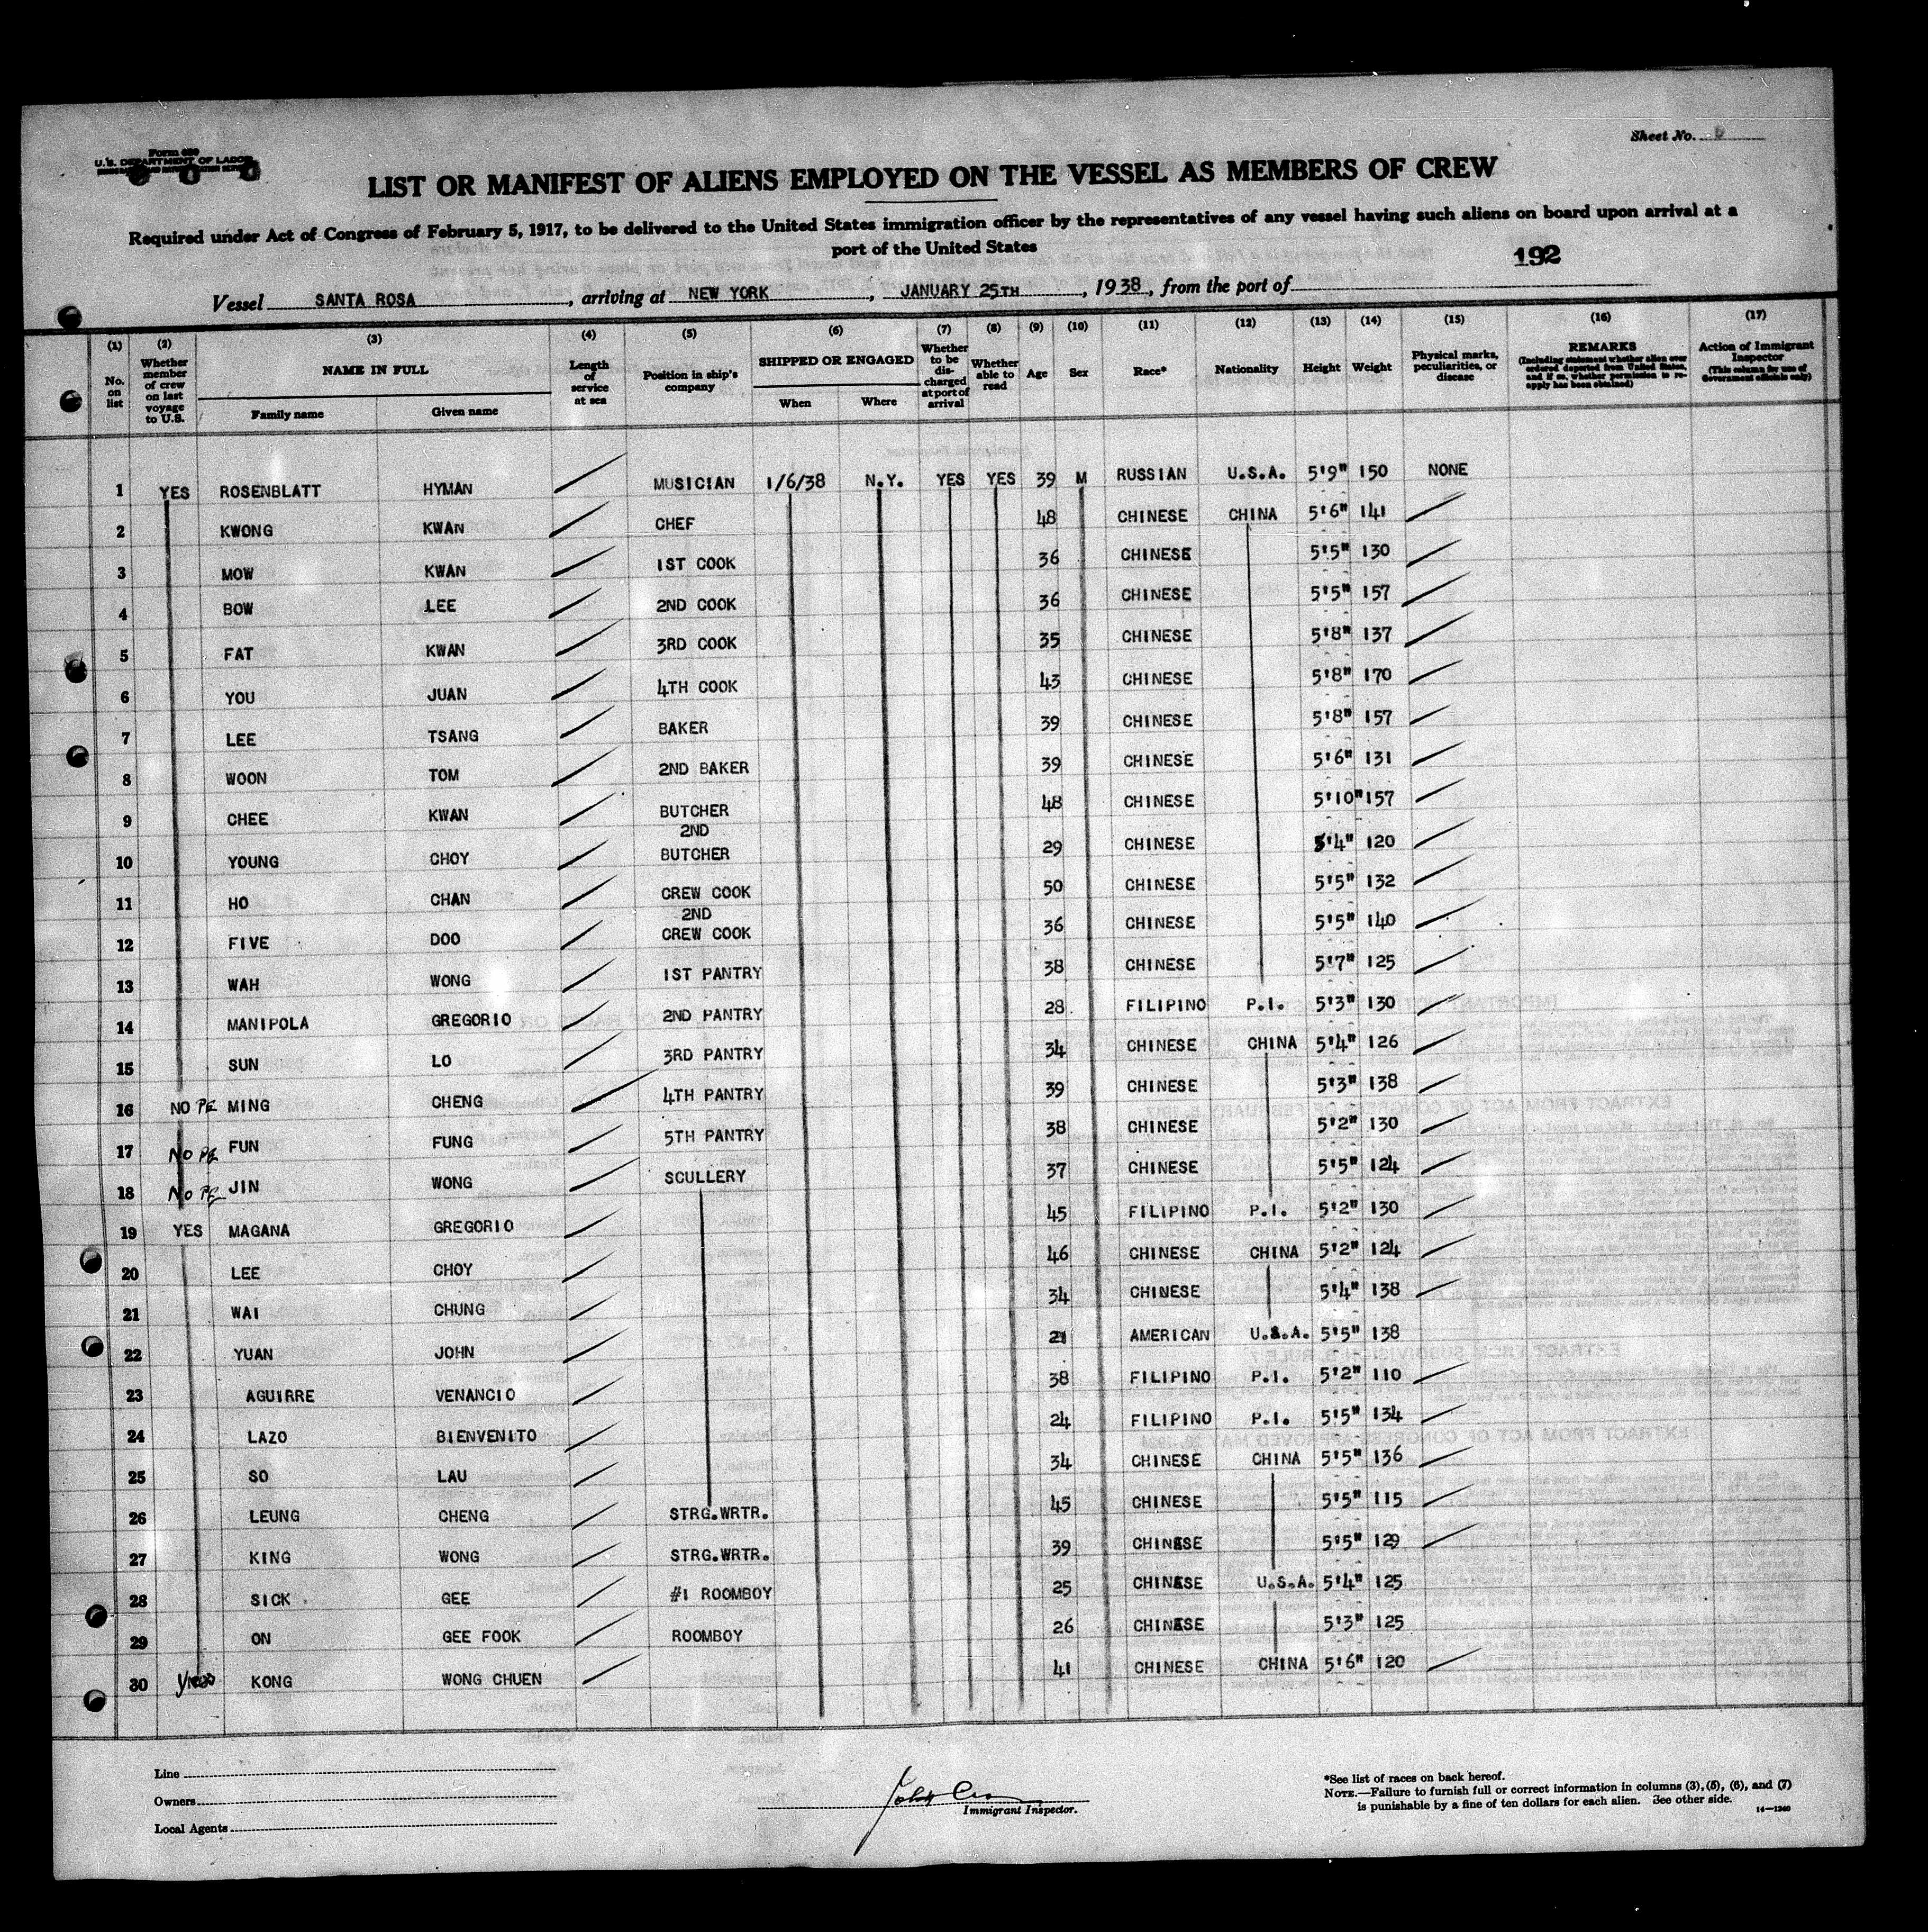 Sheet No. 6
Form 689
U.S. DEPARTMENT OF LABOR
LIST OR MANIFEST OF ALIENS EMPLOYED ON THE VESSEL AS MEMBERS OF CREW
Required under Act of Congress of February 5, 1917, to be delivered to the United States immigration officer by the representatives of any vessel having such aliens on board upon arrival at a
port of the United States
192
Vessel SANTA ROSA, arriving at NEW YORK, JANUARY 25TH, 1938, from the port of
(1) (2) (3) (4) (5) (6) (7) (8) (9) (10) (11) (12) (13) (14) (15) (16) (17)
No. on list
Whether member of crew on last voyage to U.S.
NAME IN FULL
Family name
Given name
Length of service at sea
Position in ship's company
SHIPPED OR ENGAGED
When
Where
Whether to be discharged at port of arrival
Whether able to read
Age
Sex
Race*
Nationality
Height
Weight
Physical marks, peculiarities, or disease
REMARKS
(Including statement whether alien ever ordered deported from United States, and if so, whether permission to reapply has been obtained)
Action of Immigrant Inspector
(This column for use of Government officials only)
1 YES ROSENBLATT HYMAN MUSICIAN 1/6/38 N.Y. YES YES 39 M RUSSIAN U.S.A. 5'9" 150 NONE
2 KWONG KWAN CHEF 48 CHINESE CHINA 5'6" 141
3 MOW KWAN 1ST COOK 36 CHINESE 5'5" 130
4 BOW LEE 2ND COOK 36 CHINESE 5'5" 157
5 FAT KWAN 3RD COOK 35 CHINESE 5'8" 137
6 YOU JUAN 4TH COOK 43 CHINESE 5'8" 170
7 LEE TSANG BAKER 39 CHINESE 5'8" 157
8 WOON TOM 2ND BAKER 39 CHINESE 5'6" 131
9 CHEE KWAN BUTCHER 48 CHINESE 5'10" 157
10 YOUNG CHOY 2ND BUTCHER 29 CHINESE 5'4" 120
11 HO CHAN CREW COOK 50 CHINESE 5'5" 132
12 FIVE DOO 2ND CREW COOK 36 CHINESE 5'5" 140
13 WAH WONG 1ST PANTRY 38 CHINESE 5'7" 125
14 MANIPOLA GREGORIO 2ND PANTRY 28 FILIPINO P.I. 5'3" 130
15 SUN LO 3RD PANTRY 34 CHINESE CHINA 5'4" 126
16 NO PE MING CHENG 4TH PANTRY 39 CHINESE 5'3" 138
17 NO PE FUN FUNG 5TH PANTRY 38 CHINESE 5'2" 130
18 NO PE JIN WONG SCULLERY 37 CHINESE 5'5" 124
19 YES MAGANA GREGORIO 45 FILIPINO P.I. 5'2" 130
20 LEE CHOY 46 CHINESE CHINA 5'2" 124
21 WAI CHUNG 34 CHINESE 5'4" 138
22 YUAN JOHN 21 AMERICAN U.S.A. 5'5" 138
23 AGUIRRE VENANCIO 38 FILIPINO P.I. 5'2" 110
24 LAZO BIENVENITO 24 FILIPINO P.I. 5'5" 134
25 SO LAU 34 CHINESE CHINA 5'5" 136
26 LEUNG CHENG STRG.WRTR. 45 CHINESE 5'5" 115
27 KING WONG STRG.WRTR. 39 CHINESE 5'5" 129
28 SICK GEE #1 ROOMBOY 25 CHINESE U.S.A. 5'4" 125
29 ON GEE FOOK ROOMBOY 26 CHINESE 5'3" 125
30 KONG WONG CHUEN 41 CHINESE CHINA 5'6" 120
Line
Owners
Local Agents
Immigrant Inspector.
*See list of races on back hereof.
NOTE.—Failure to furnish full or correct information in columns (3), (5), (6), and (7)
is punishable by a fine of ten dollars for each alien. See other side.
14—1240